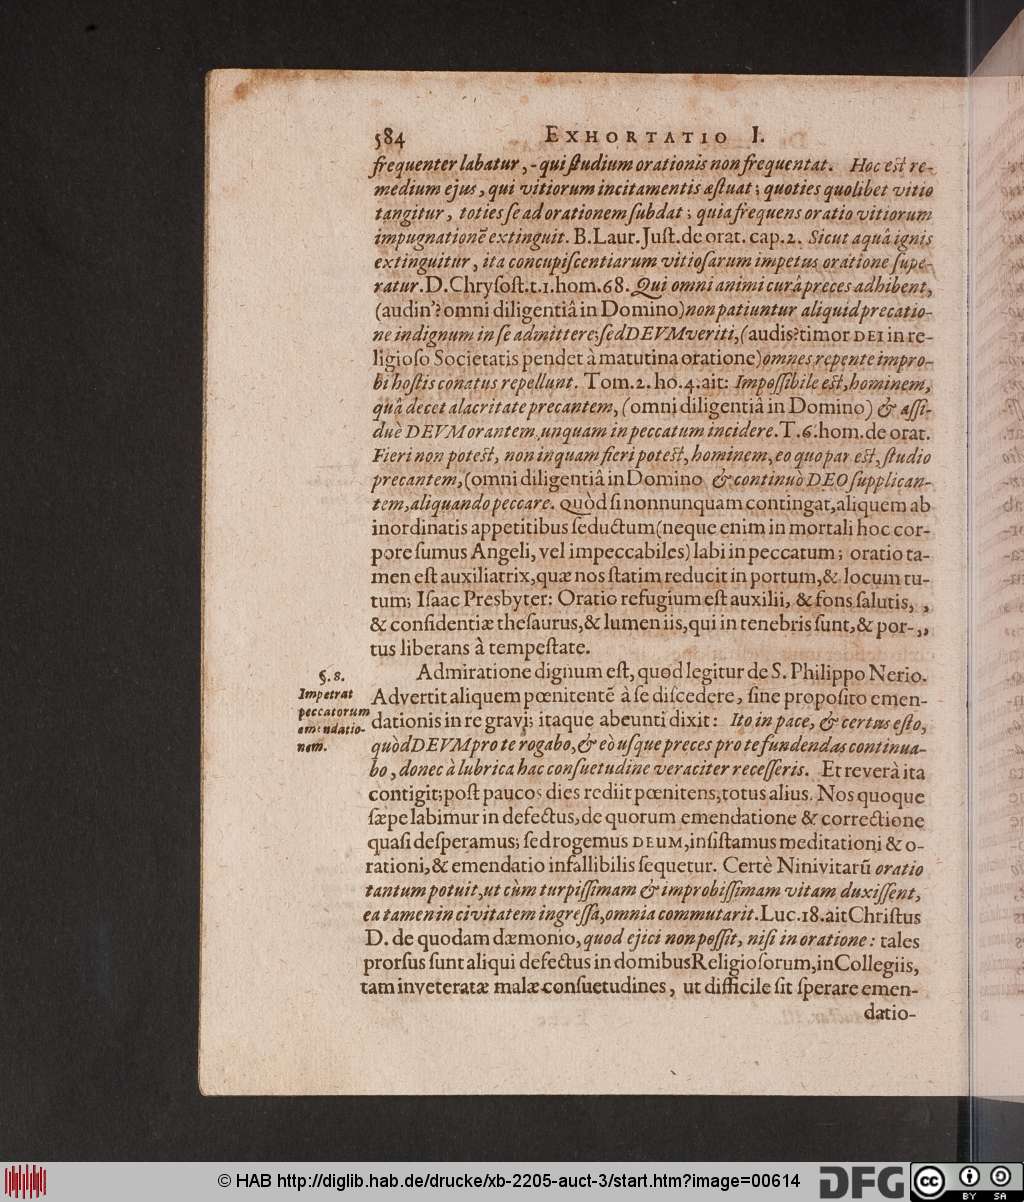 584 EXHORTATIO I.
frequenter labatur, - qui ſtudium orationis non frequentat. Hoc eſt re-
medium ejus, qui vitiorum incitamentis æſtuat; quoties quolibet vitio
tangitur, toties ſe ad orationem ſubdat; quia frequens oratio vitiorum
impugnationẽ extinguit. B. Laur. Juſt. de orat. cap. 2. Sicut aquâ ignis
extinguitur, ita concupiſcentiarum vitioſarum impetus oratione ſupe-
ratur. D. Chryſoſt. t. 1. hom. 68. Qui omni animi curâ preces adhibent,
(audin'? omni diligentiâ in Domino) non patiuntur aliquid precatio-
ne indignum in ſe admittere; ſed DEVM veriti, (audis? timor DEI in re-
ligioſo Societatis pendet à matutina oratione) omnes repente impro-
bi hoſtis conatus repellunt. Tom. 2. ho. 4. ait: Impoſſibile eſt, hominem,
quâ decet alacritate precantem, (omni diligentiâ in Domino) & aſſi-
duè DEVM orantem unquam in peccatum incidere. T. 6. hom. de orat.
Fieri non poteſt, non inquam fieri poteſt, hominem, eo quo par eſt, ſtudio
precantem, (omni diligentiâ in Domino & continuò DEO ſupplican-
tem, aliquando peccare. Quòd ſi nonnunquam contingat, aliquem ab
inordinatis appetitibus ſeductum (neque enim in mortali hoc cor-
pore ſumus Angeli, vel impeccabiles) labi in peccatum; oratio ta-
men eſt auxiliatrix, quæ nos ſtatim reducit in portum, & locum tu-
tum; Iſaac Presbyter: Oratio refugium eſt auxilii, & fons ſalutis, ,
& confidentiæ theſaurus, & lumen iis, qui in tenebris ſunt, & por- ,,
tus liberans à tempeſtate.
§. 8.
Impetrat
peccatorum
emendatio-
nem.
Admiratione dignum eſt, quod legitur de S. Philippo Nerio.
Advertit aliquem pœnitentẽ à ſe diſcedere, ſine propoſito emen-
dationis in re gravi; itaque abeunti dixit: Ito in pace, & certus eſto,
quòd DEVM pro te rogabo, & eò uſque preces pro te fundendas continua-
bo, donec à lubrica hac conſuetudine veraciter receſſeris. Et reverà ita
contigit; poſt paucos dies rediit pœnitens, totus alius. Nos quoque
ſæpe labimur in defectus, de quorum emendatione & correctione
quaſi deſperamus; ſed rogemus DEUM, inſiſtamus meditationi & o-
rationi, & emendatio infallibilis ſequetur. Certè Ninivitarũ oratio
tantum potuit, ut cùm turpiſſimam & improbiſſimam vitam duxiſſent,
ea tamen in civitatem ingreſſa, omnia commutarit. Luc. 18. ait Chriſtus
D. de quodam dæmonio, quod ejici non poſſit, niſi in oratione: tales
prorſus ſunt aliqui defectus in domibus Religioſorum, in Collegiis,
tam inveteratæ malæ conſuetudines, ut difficile ſit ſperare emen-
datio-
© HAB http://diglib.hab.de/drucke/xb-2205-auct-3/start.htm?image=00614
DFG
cc BY SA